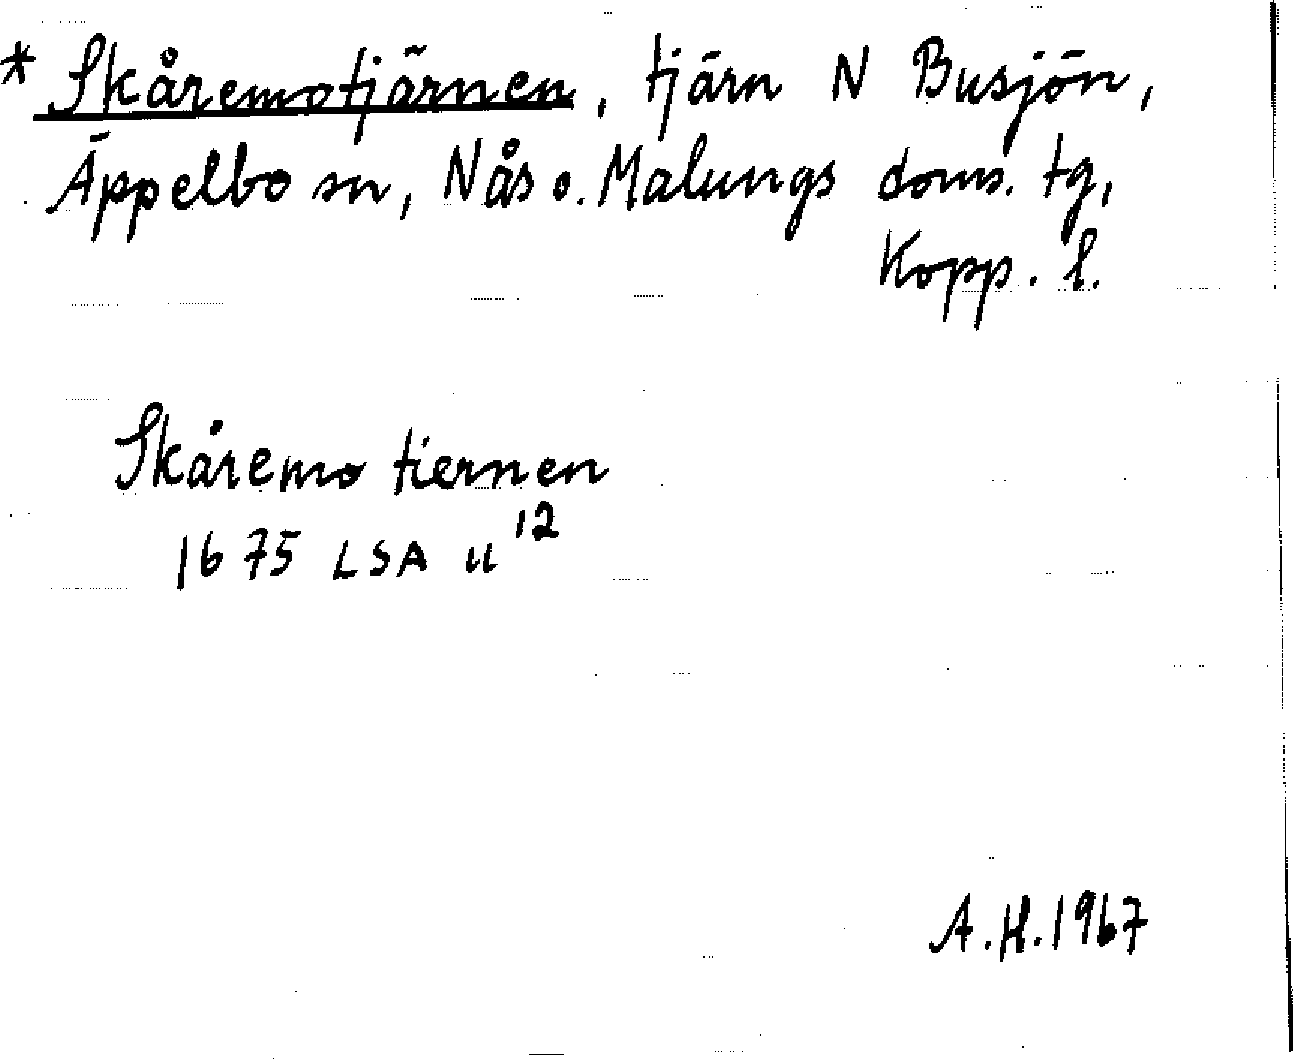 * Skåremotjärnen, tjärn N Busjön,
Äppelbo sn, Nås o. Malungs doms. tg,
Kopp. l.
Skåremo tiernen
1675 LSA u 12
A.H. 1967